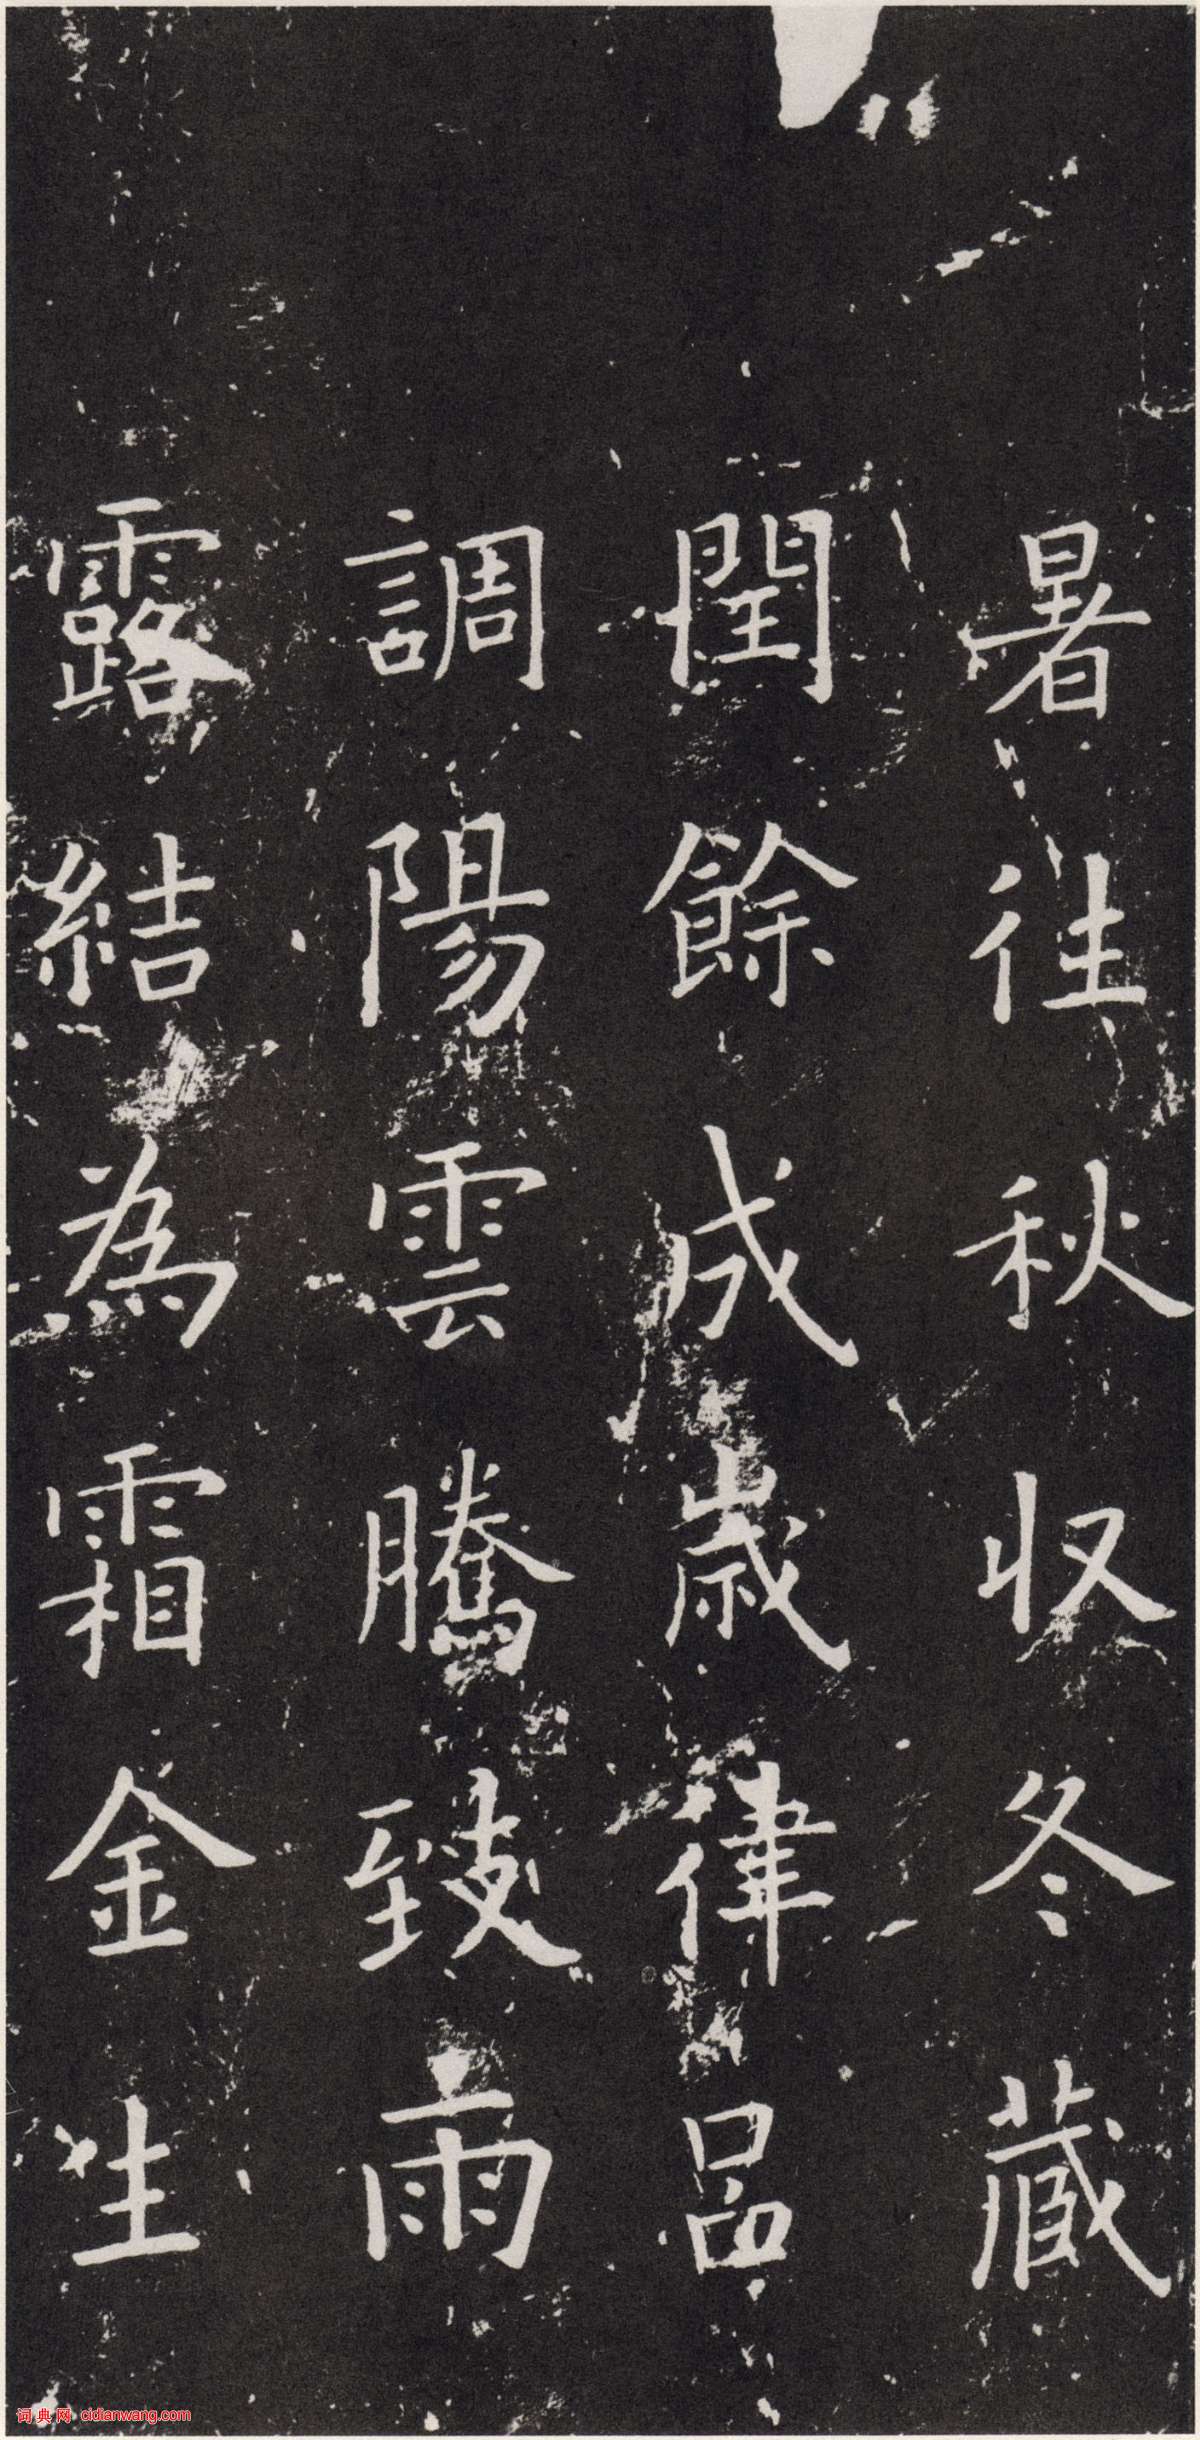 暑往秋収冬藏
閏餘成歲律呂
調陽雲騰致雨
露結為霜金生
词典网 cidianwang.com